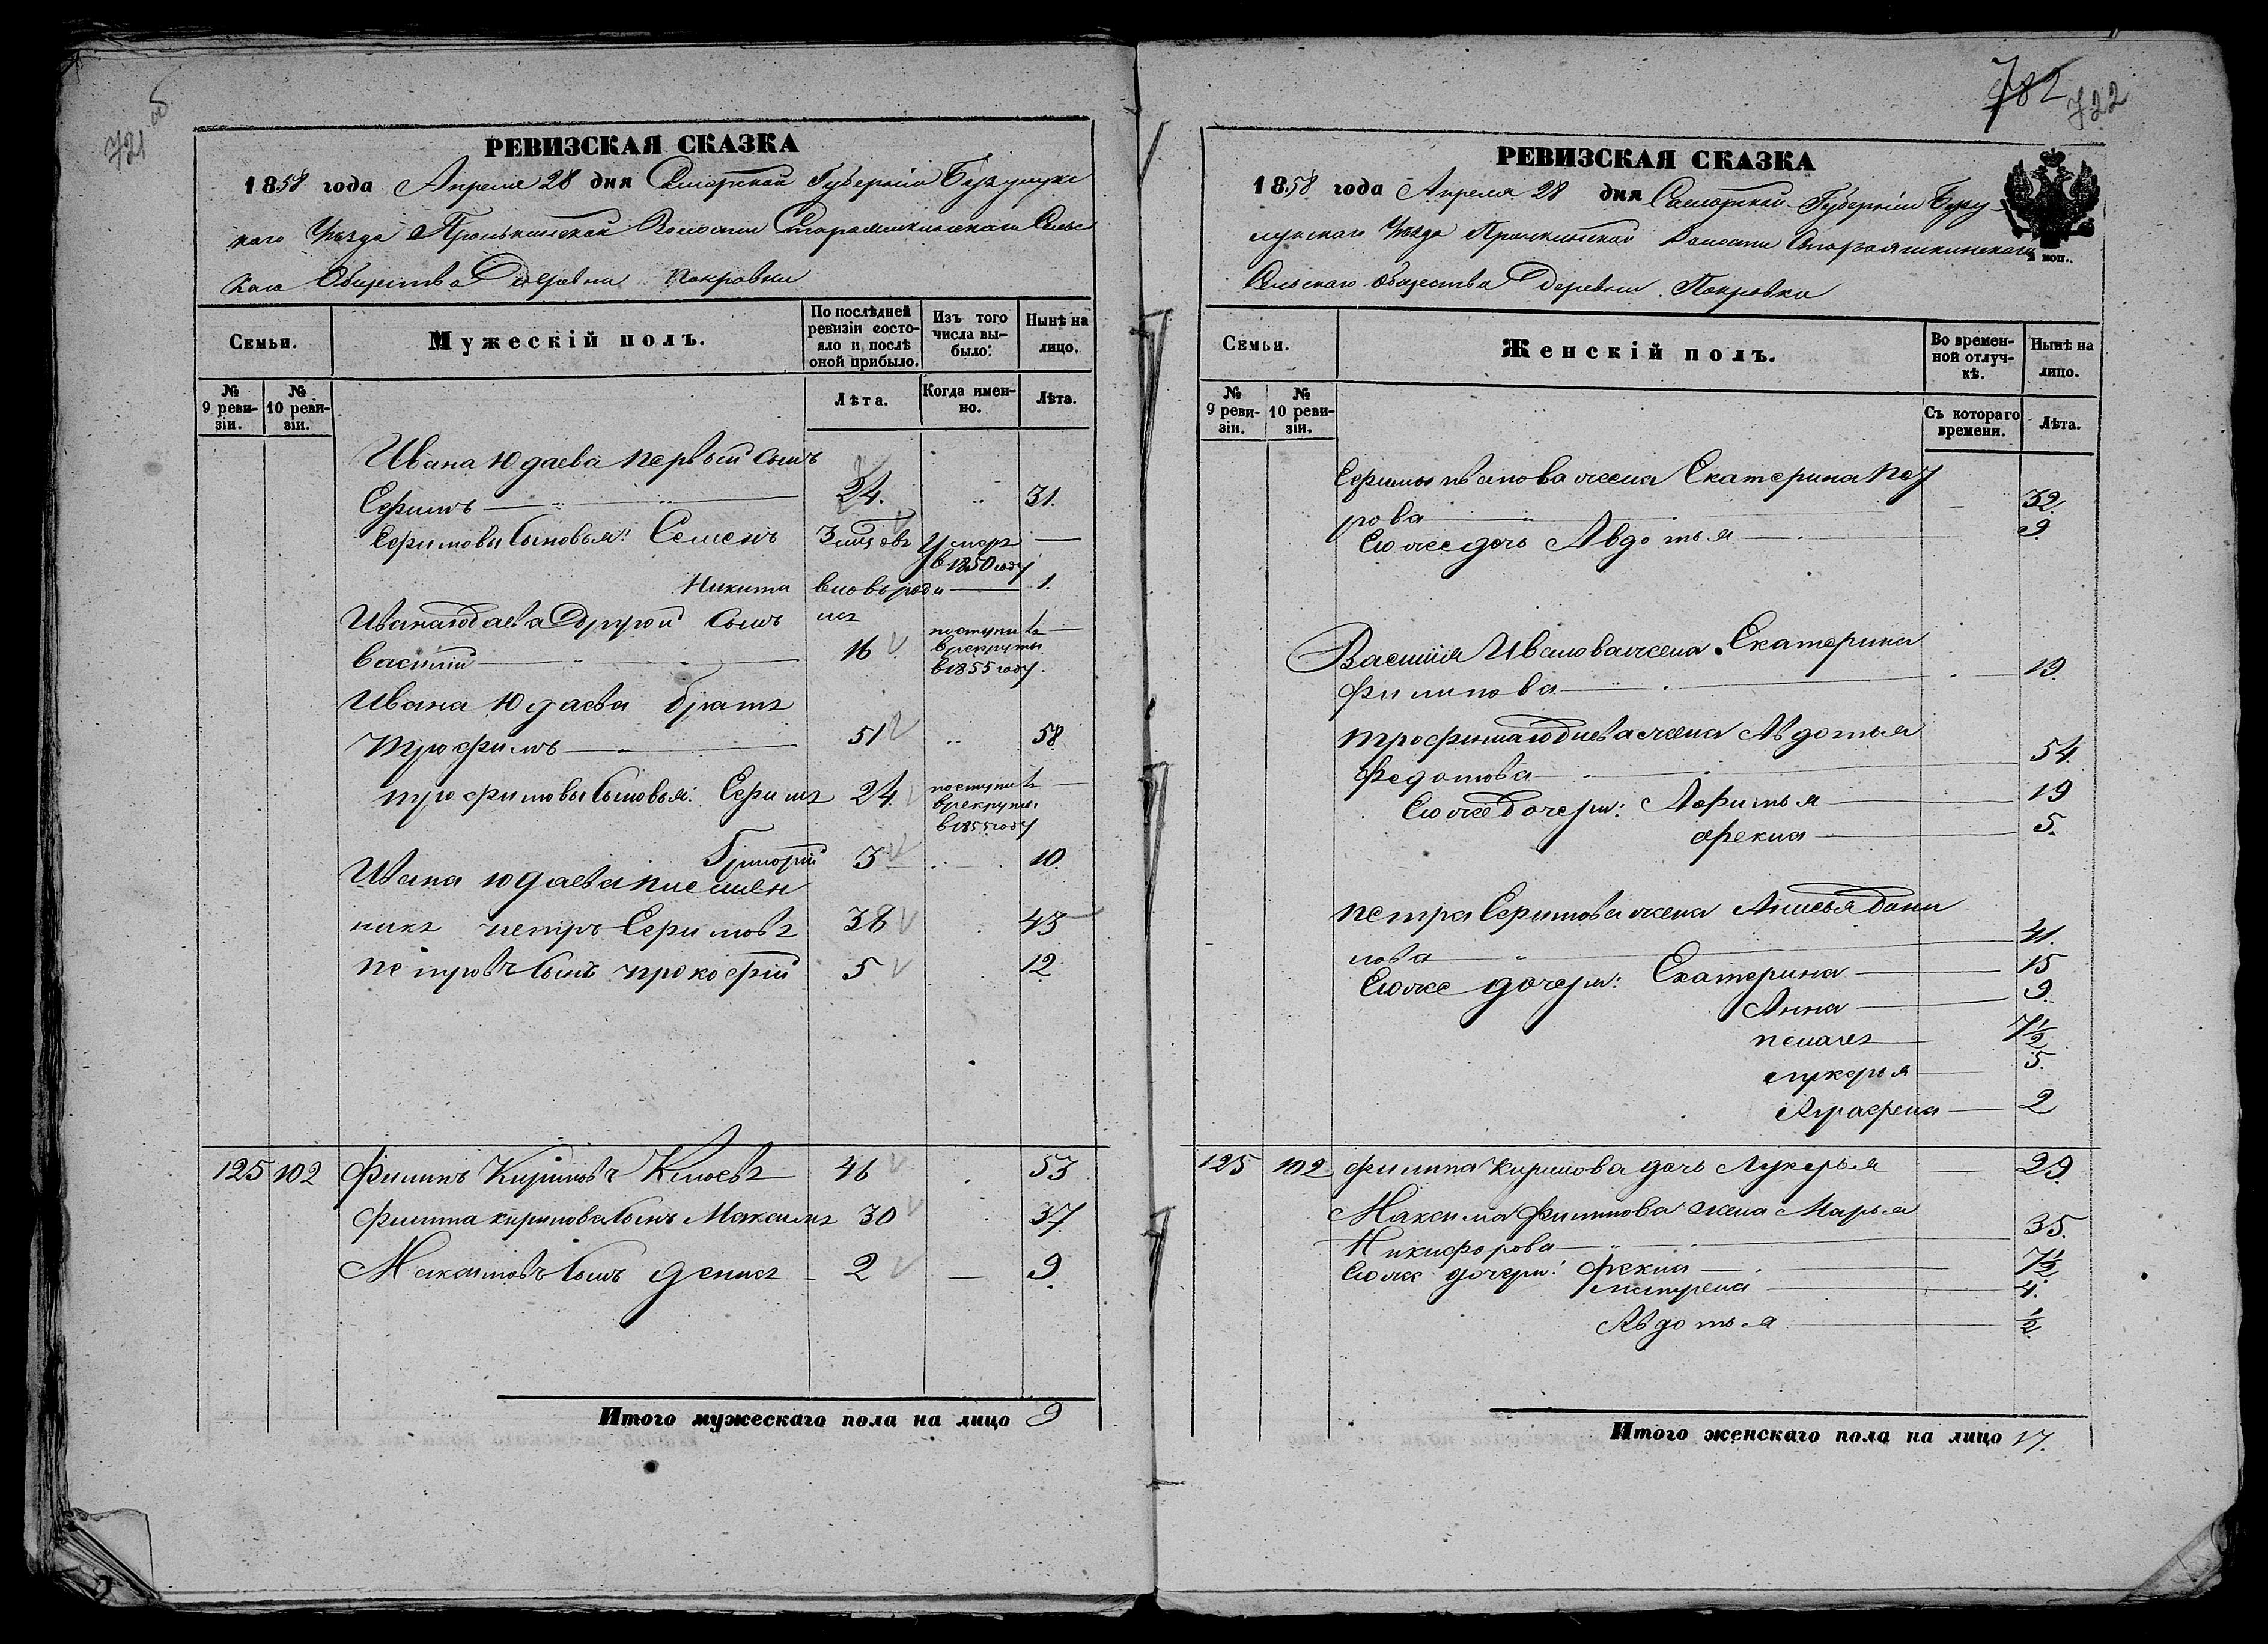 721 об
РЕВИЗСКАЯ СКАЗКА
1858 года Апреля 28 дня Самарской Губерніи Бузулукс
каго Уѣзда Пронькинской Волости Старояшкинскаго Сельс
каго Общества Деревни Покровки
Семьи.
Мужескій полъ.
По послѣдней ревизіи состояло и послѣ оной прибыло.
Изъ того числа выбыло:
Нынѣ на лицо.
№ 9 ревизіи.
№ 10 ревизіи.
Лѣта.
Когда именно.
Лѣта.
Ивана Юдаева первый сынъ
Ефимъ 24. 31.
Ефимовы сыновья: Семенъ 3 мѣсяцовъ Умеръ в 1850 году
Никита вновь родился 1.
Ивана Юдаева Другой сынъ
Василій 16 поступилъ в рекруты в 1855 году.
Ивана Юдаева братъ
Трофимъ 51 58
Трофимовы сыновья: Ефимъ 24. поступилъ в рекруты в 1855 году
Григорій 3 10.
Ивана Юдаева племян
никъ петръ Ефимовъ 38 45
петровъ сынъ прокофій 5 12
125 102 Филипъ Кириловъ Клюевъ 46 53
Филипа кирилова сынъ Максимъ 30 37.
Максимовъ сынъ денисъ 2 9.
Итого мужескаго пола на лицо 9
782 722
РЕВИЗСКАЯ СКАЗКА
1858 года Апреля 28 дня Самарской Губерніи Бузу
лукскаго Уѣзда Пронкинской Волости Старояшкинскаго
Сельскаго Общества Деревни Покровки
Семьи.
Женскій полъ.
Во временной отлучкѣ.
Нынѣ на лицо.
№ 9 ревизіи.
№ 10 ревизіи.
Съ котораго времени.
Лѣта.
Ефима иванова жена Екатерина Пет
рова 32.
Ею же дочь Авдотья 9.
Василія Иванова жена Екатерина
филипова 19.
трофима юдаева жена Авдотья
федотова 54.
Ею же дочери: Афимья 19
фекла 5.
петра Ефимова жена Анисья дани
лова 41.
Ею же дочери: Екатерина 15
Анна 9.
пелагея 7½
лукерья 5.
Аграфена 2
125 102 филипа Кирилова дочь Лукерья 29.
Максима филипова жена Марья
Никифорова 35.
Ею же дочери: фекла 7½
настрена 4.
Авдотья ½
Итого женскаго пола на лицо 17.